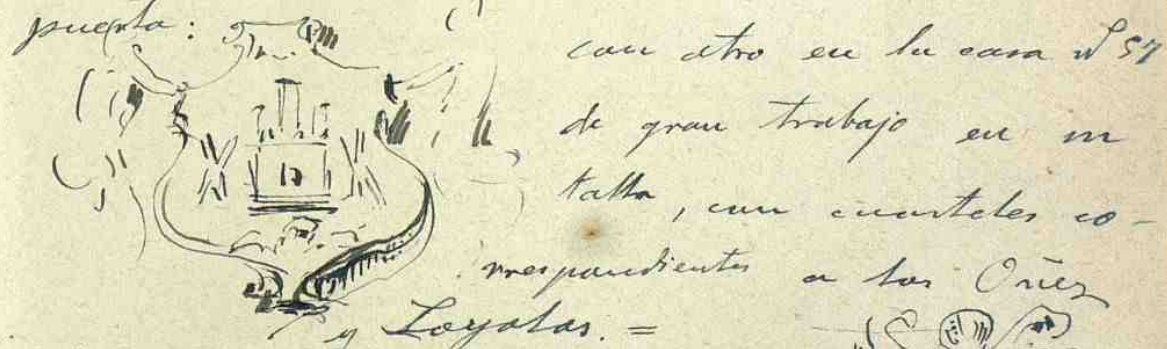 puerta:
con otro en la casa nº 57
de gran trabajo en su
talla, con cuarteles co-
rrespondientes a los Oñez
y Loyolas. =